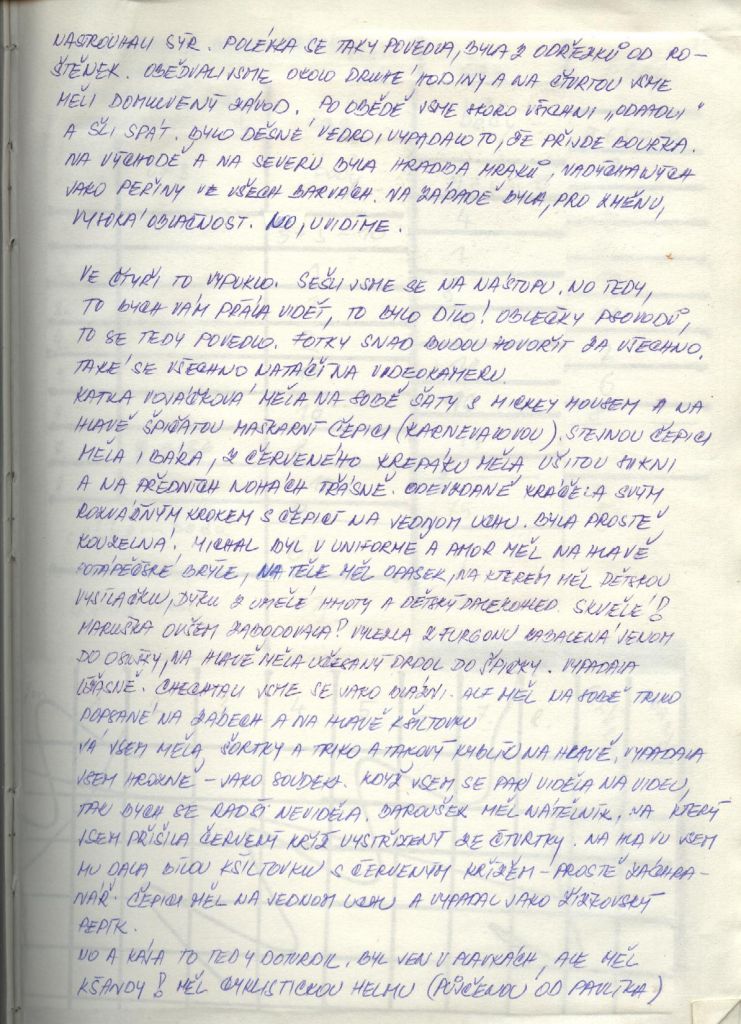 NASTROUHALI SÝR. POLÉVKA SE TAKY POVEDLA, BYLA Z ODŘEZKŮ OD RO-
ŠTĚNEK. OBĚDVALI JSME OKOLO DRUHÉ HODINY A NA ČTVRTOU JSME
MĚLI DOMLUVENÝ ZÁVOD. PO OBĚDĚ JSME SKORO VŠICHNI „ODPADLI"
A ŠLI SPÁT. BYLO DĚSNÉ VEDRO, VYPADALO TO, ŽE PŘIJDE BOUŘKA.
NA VÝCHODĚ A NA SEVERU BYLA HRADBA MRAKŮ, NADÝCHANÝCH
JAKO PEŘINY VE VŠECH BARVÁCH. NA ZÁPADĚ BYLA, PRO ZMĚNU,
VYSOKÁ OBLAČNOST. NO, UVIDÍME.

VE ČTYŘI TO VYPUKLO. SEŠLI JSME SE NA NÁSTUPU. NO TEDY,
TO BYCH VÁM PŘÁLA VIDĚT, TO BYLO DÍLO! OBLEČKY PSOVODŮ,
TO SE TEDY POVEDLO. FOTKY SNAD BUDOU HOVOŘIT ZA VŠECHNO.
TAKÉ SE VŠECHNO NATÁČÍ NA VIDEOKAMERU.
KATKA VOJÁČKOVÁ MĚLA NA SOBĚ ŠATY S MICKEY MOUSEM A NA
HLAVĚ ŠPIČATOU MAŠKARNÍ ČEPICI (KARNEVALOVOU). STEJNOU ČEPICI
MĚLA I BÁRA, Z ČERVENÉHO KREPÁKU MĚLA UŠITOU SUKNI
A NA PŘEDNÍCH NOHÁCH TŘÁSNĚ. ODEVZDANĚ KRÁČELA SVÝM
ROZVÁŽNÝM KROKEM S ČEPICÍ NA JEDNOM UCHU. BYLA PROSTĚ
KOUZELNÁ. MICHAL BYL V UNIFORMĚ A AMOR MĚL NA HLAVĚ
POTÁPĚČSKÉ BRÝLE, NA TĚLE MĚL OPASEK, NA KTERÉM MĚL DĚTSKOU
VYSÍLAČKU, DÝKU Z UMĚLÉ HMOTY A DĚTSKÝ DALEKOHLED. SKVĚLÉ!
MARUŠKA OVŠEM ZABODOVALA! VYLEZLA Z FURGONU ZABALENÁ JENOM
DO OSUŠKY, NA HLAVĚ MĚLA UČESANÝ DRDOL DO ŠPIČKY. VYPADALA
ÚŽASNĚ. CHECHTALI JSME SE JAKO BLÁZNI. ALF MĚL NA SOBĚ TRIKO
POPSANÉ NA ZÁDECH A NA HLAVĚ KŠILTOVKU
JÁ JSEM MĚLA ŠORTKY A TRIKO A TAKOVÝ KYBLÍČ NA HLAVĚ. VYPADALA
JSEM HROZNĚ – JAKO SOUDEK. KDYŽ JSEM SE PAK VIDĚLA NA VIDEU,
TAK BYCH SE RADŠI NEVIDĚLA. BAROUŠEK MĚL NÁTĚLNÍK, NA KTERÝ
JSEM PŘIŠILA ČERVENÝ KŘÍŽ VYSTŘIŽENÝ ZE ČTVRTKY. NA HLAVU JSEM
MU DALA BÍLOU KŠILTOVKU S ČERVENÝM KŘÍŽEM – PROSTĚ ZÁCHRA-
NÁŘ. ČEPICI MĚL NA JEDNOM UCHU A VYPADAL JAKO ŽIŽKOVSKÝ
PEPÍK.
NO A KÁJA TO TEDY DOTVRDIL. BYL JEN V PLAVKÁCH, ALE MĚL
KŠANDY! MĚL CYKLISTICKOU HELMU (PŮJČENOU OD PAVLÍKA)